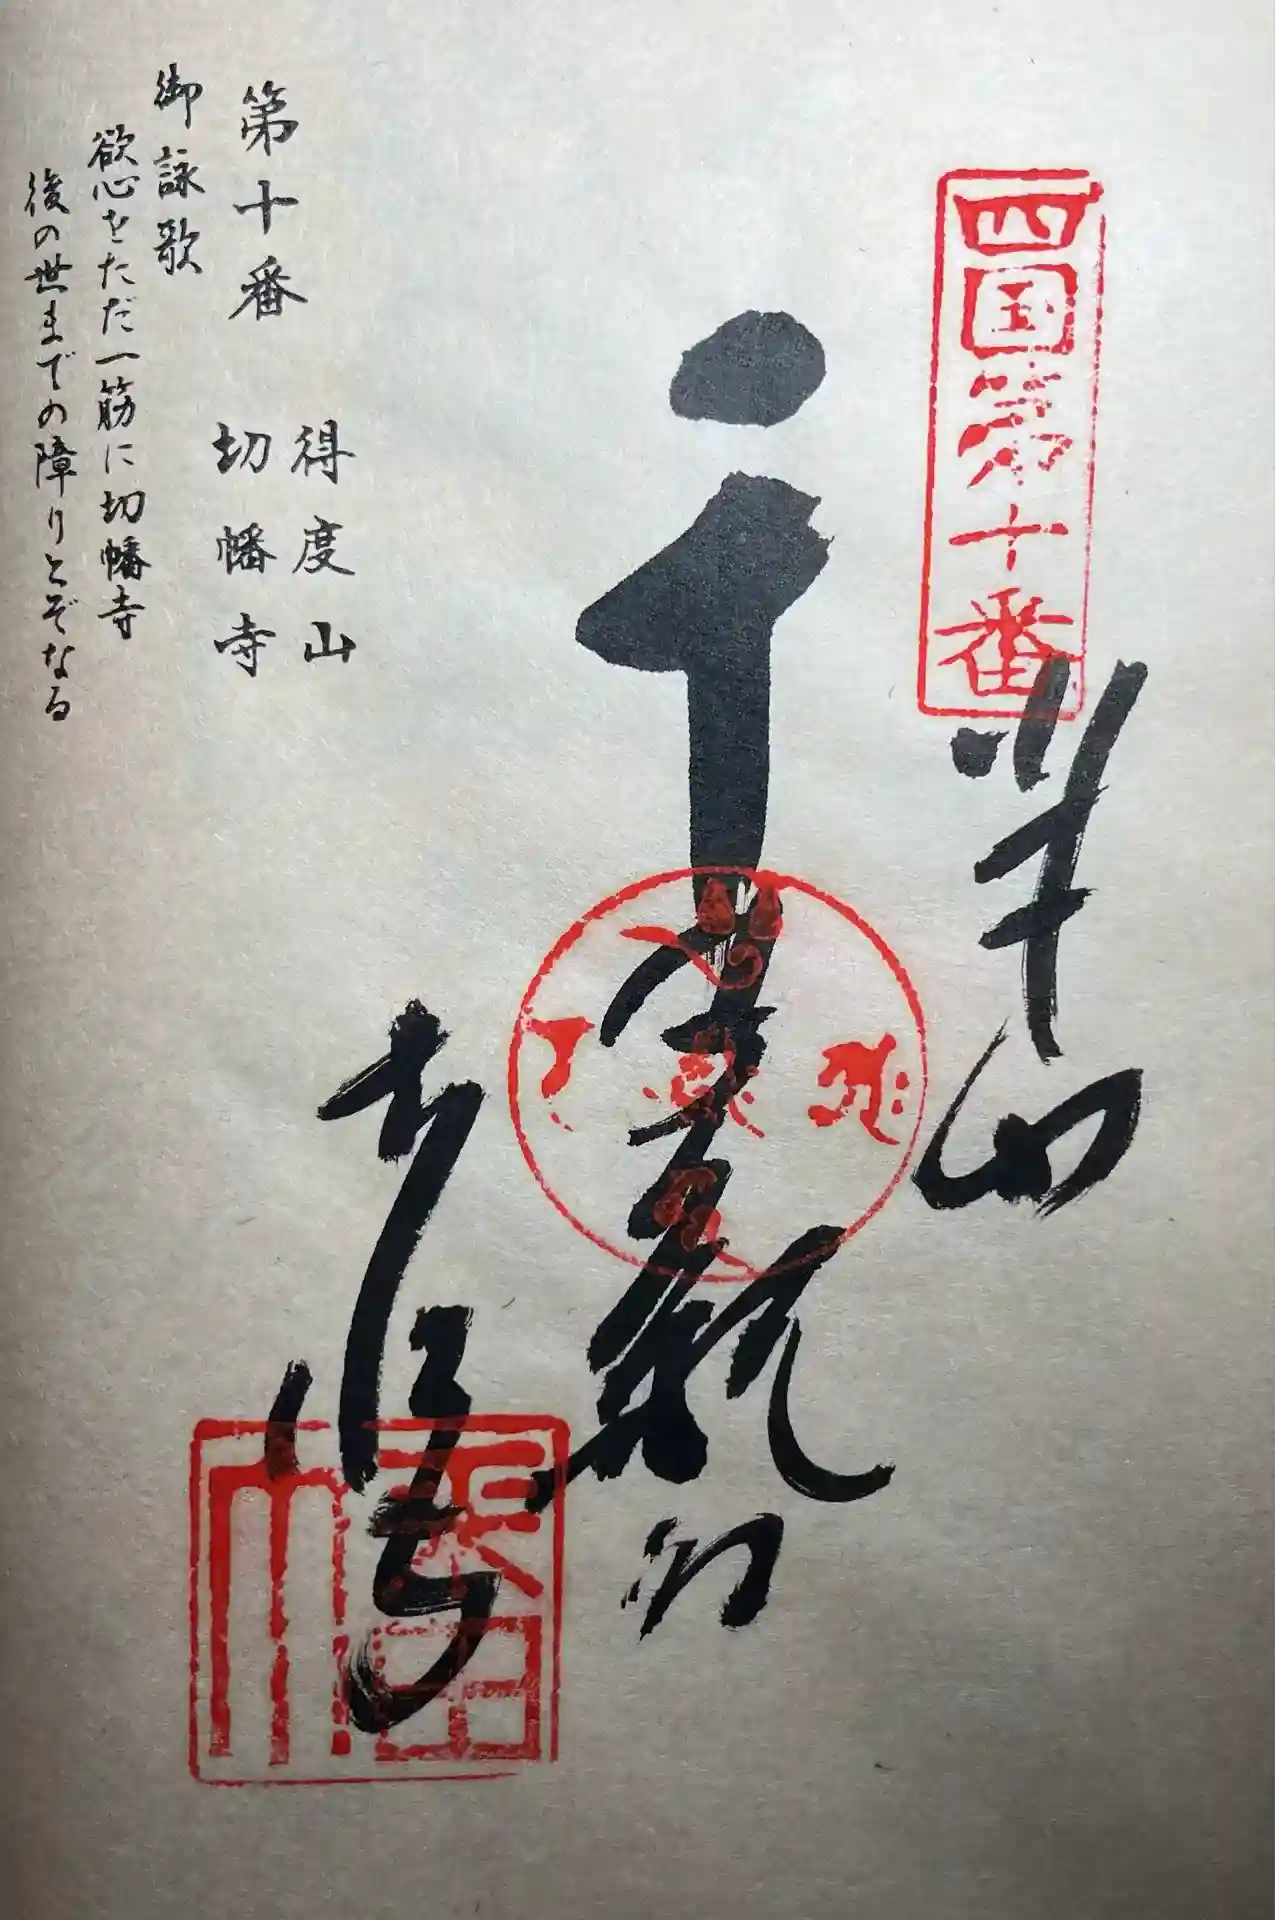 四国第十番
奉納
千手観音
切幡寺
得度山
切幡寺
第十番
御詠歌
欲心をただ一筋に切幡寺
後の世までの障りとぞなる